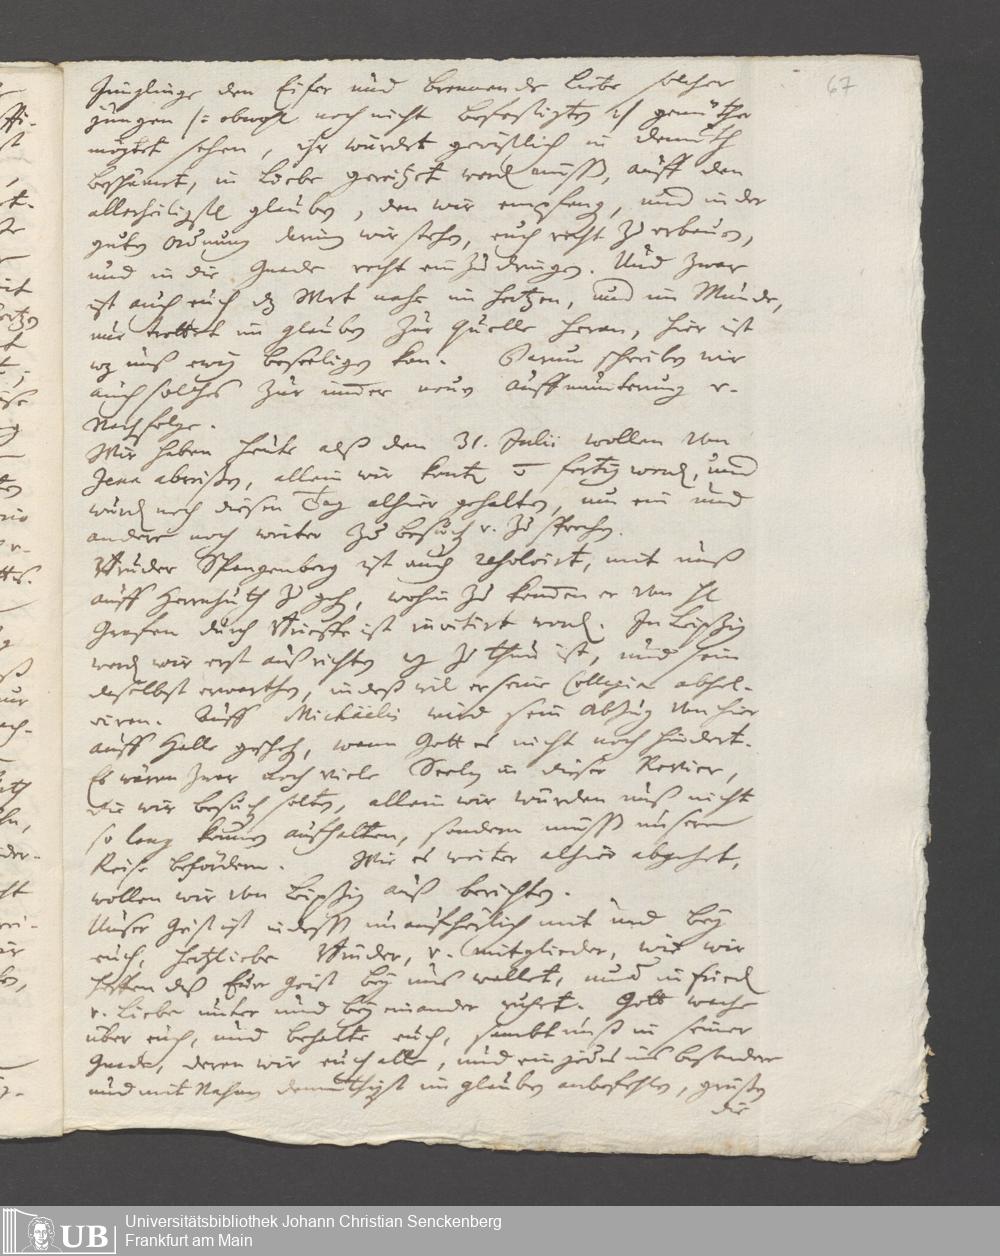 67
Jünglinge den Eifer und brennende Liebe solcher
jungen /: obwohl noch nicht befestigten :/ gemüther
möchtet sehen, ihr würdet gewißlich in Demuth
beschämet, in Liebe gereitzet werden müssen, auff den
allerheiligsten glauben, den wir empfangen, und in der
guten Ordnung darin wir stehen, euch recht zu erbauen,
und in die Gnade recht ein zu dringen. Und zwar
ist auch euch dz Wort nahe im Hertzen, und im Munde,
nur trettet im glauben zur Quelle heran, hier ist
wz uns ewig beseeligen kan. Darum schreiben wir
auch solches zur imer neuen Auffmunterung v.
Nachfolge.
Wir haben heute alß den 31. Julii wollen von
Jena abreisen, allein wir konten fertig werden, und
wurden noch diesen Tag alhier gehalten, um ein und
andere noch weiter zu besuchen v. zu sprechen.
Bruder Spangenberg ist auch resolvirt, mit uns
auff Herrnhuth zu gehen, wohin zu kommen er von H
Grafen durch Brieffe ist invitirt worden. In Leipzig
werden wir erst außrichten wz zu thun ist, und sein
daselbst erwarthen, indeß wil er seine Collegia absol-
viren. Auff Michaelis wird sein Abzug von hier
auff Halle geschehen, wenn Gott es nicht noch hindert.
Es wären zwar noch viele Seelen in dieser Revier,
die wir besuchen solten, allein wir würden uns nicht
so lang können auffhalten, sondern müssen unsere
Reise befördern. Wie es weiter alhier abgehet,
wollen wir von Leipzig auß berichten.
Unser Geist ist indessen unauffhörlich mit und bey
euch, hertzliebe Brüder, v. mitglieder, wie wir
hoffen daß Euer Geist bey uns wallet, und in Fried
v. Liebe unter und bey einander ruhet. Gott wache
über euch, und behalte euch, sambt uns in seiner
Gnade, deren wir euch alle, und ein jedes ins besondere
und mit Nahmen demüthigst im glauben anbefehlen, grüßen
die
Universitätsbibliothek Johann Christian Senckenberg
Frankfurt am Main
UB